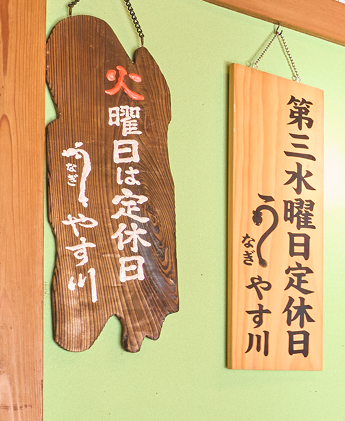 火曜日は定休日
うなぎ
やす川
第三水曜日定休日
うなぎ
やす川